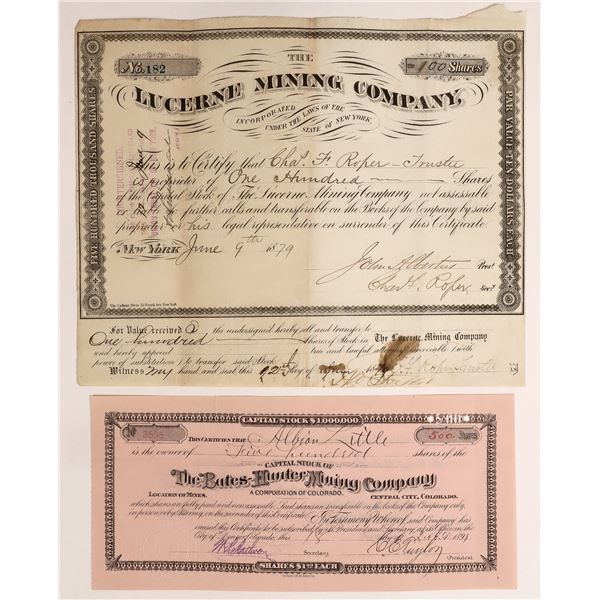 THE
No. 182
100 Shares
LUCERNE MINING COMPANY,
INCORPORATED UNDER THE LAWS OF THE STATE OF NEW YORK
FIVE HUNDRED THOUSAND SHARES
PAR VALUE TEN DOLLARS EACH
This is to Certify that Chas. F. Roper - Trustee
is proprietor of One Hundred Shares
of the Capital Stock of The Lucerne Mining Company not assessable
further calls and transferable on the Books of the Company by said
proprietor or his legal representative on surrender of this Certificate.
New York June 9th 1879
John Albertus Prest
Chas F. Roper Secy
For Value received the undersigned hereby sell and transfer to
One hundred Shares of Stock in The Lucerne Mining Company
and hereby appoint true and lawful attorney irrevocable (with
power of substitution) to transfer said Stock
Witness my hand and seal this day of
CAPITAL STOCK $1,000,000.
No 3595
500
THIS CERTIFIES THAT Albion Little
is the owner of Five hundred shares of the
CAPITAL STOCK OF
The Bates-Hunter Mining Company
LOCATION OF MINES, A CORPORATION OF COLORADO. CENTRAL CITY, COLORADO.
which shares are fully paid and non assessable. Said shares are transferable on the books of the Company only,
in person, or by Attorney, on the surrender of this Certificate. In Testimony Whereof said Company has
caused this Certificate to be subscribed by its President and Secretary at its Office in the
City of Colorado, this 1891
Secretary
President
SHARES $1.00 EACH